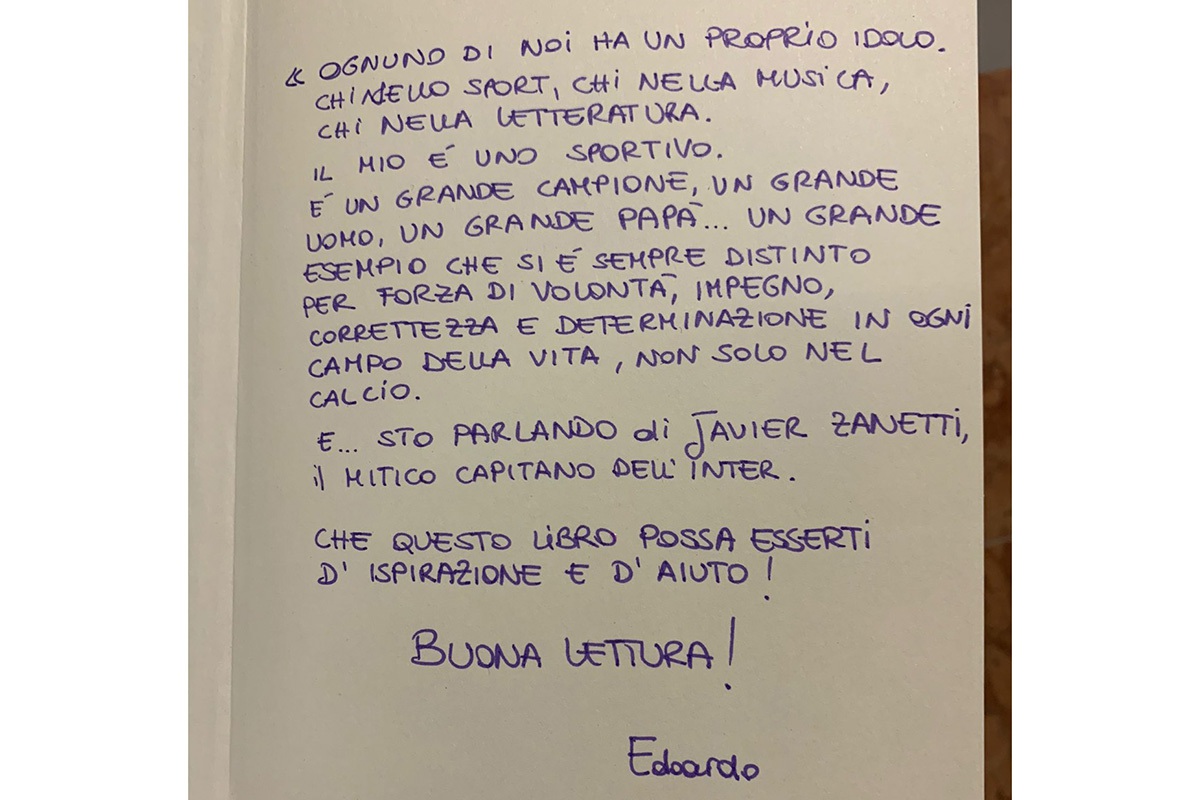 « OGNUNO DI NOI HA UN PROPRIO IDOLO.
CHI NELLO SPORT, CHI NELLA MUSICA,
CHI NELLA LETTERATURA.
IL MIO É UNO SPORTIVO.
É UN GRANDE CAMPIONE, UN GRANDE
UOMO, UN GRANDE PAPÀ... UN GRANDE
ESEMPIO CHE SI É SEMPRE DISTINTO
PER FORZA DI VOLONTÀ, IMPEGNO,
CORRETTEZZA E DETERMINAZIONE IN OGNI
CAMPO DELLA VITA, NON SOLO NEL
CALCIO.
E... STO PARLANDO di JAVIER ZANETTI,
il MITICO CAPITANO DELL'INTER.
CHE QUESTO LIBRO POSSA ESSERTI
D'ISPIRAZIONE E D'AIUTO!
BUONA LETTURA!
Edoardo